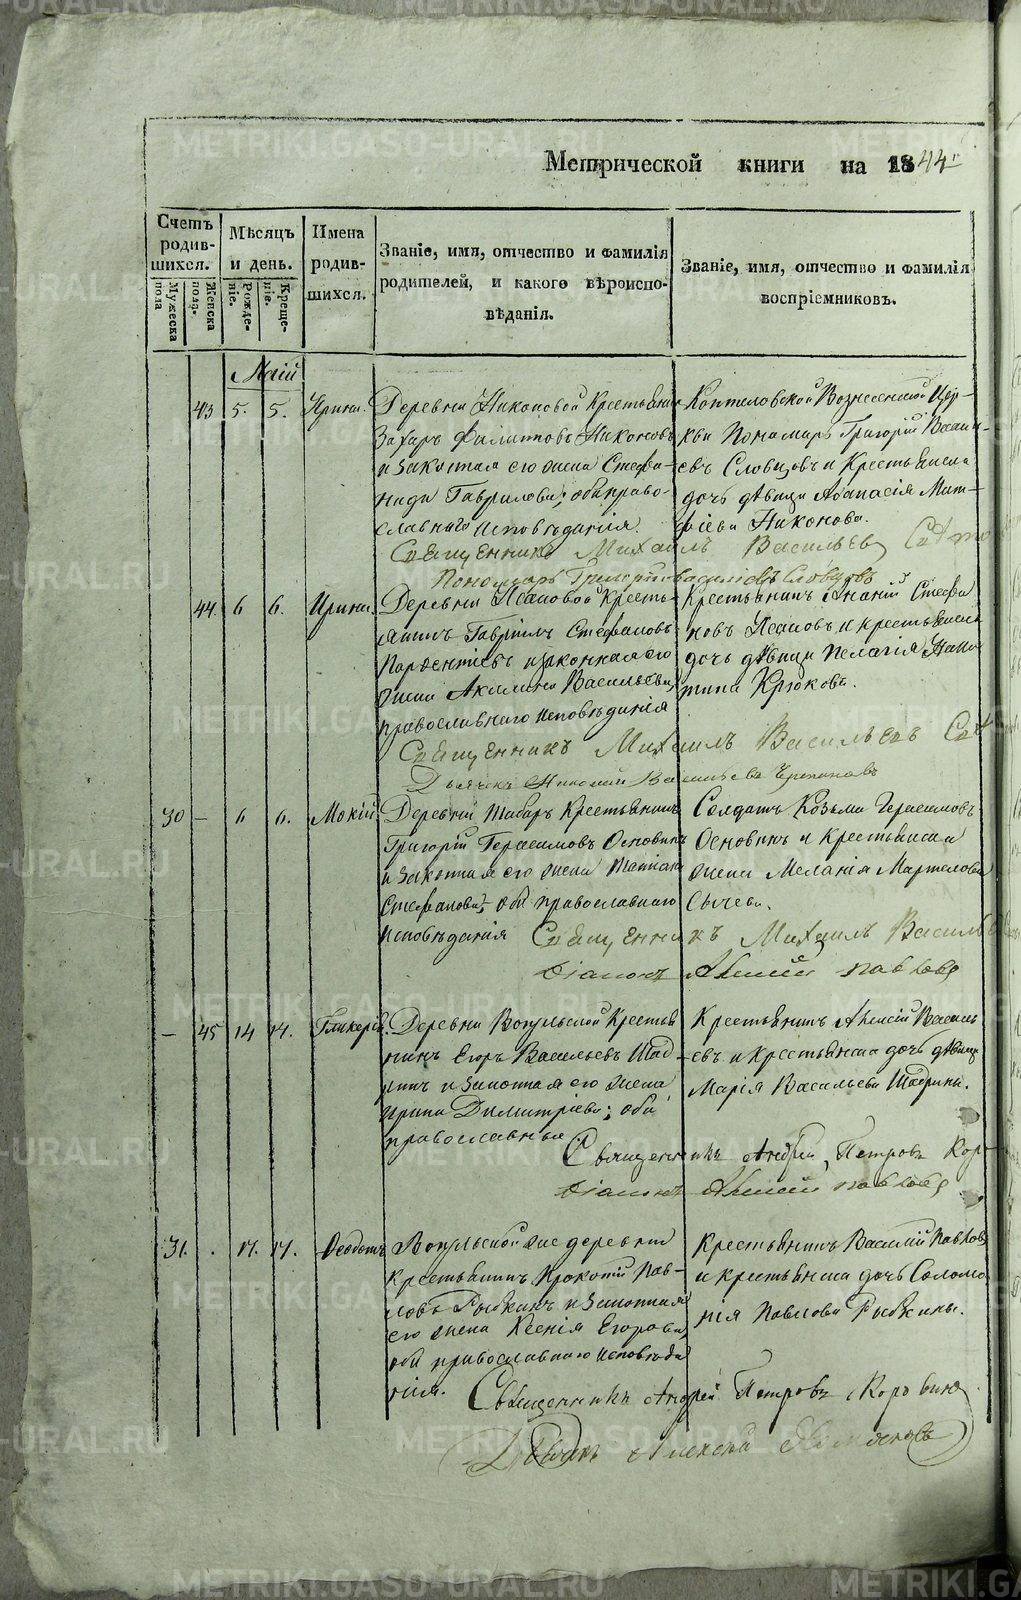 METRIKI.GASO-URAL.RU
Метрической книги на 1844 г
Счетъ родившихся.
Мѣсяцъ и день.
Имена родившихся.
Званіе, имя, отчество и фамилія родителей, и какого вѣроисповѣданія.
Званіе, имя, отчество и фамилія воспріемниковъ.
Мужеска пола
Женска пола.
Рожденіе.
Крещеніе.
Маій
43 5. 5. Ирина.
Деревни Никоновой Крестьянинъ
Захаръ Филипповъ Никоновъ
и законная его жена Стефа-
нида Гаврилова; оба право-
славнаго исповѣданія.
Коптеловской Вознесенской Цер-
кви Пономарь Григорій Васильи-
евъ Словцовъ и Крестьянская
дочь дѣвица Афанасія Мат-
фіева Никонова.
Священникъ Михаилъ Васильевъ
Пономарь Григорій Васильевъ Словцовъ
44. 6 6. Ирина.
Деревни Исаковой Кресть-
янинъ Гавріилъ Стефановъ
и законная его
жена Акилина Васильева,
православнаго исповѣданія
Крестьянинъ Стефа
новъ и крестьянская
дочь дѣвица Пелагія
Крюкова.
Священникъ Михаилъ Васильевъ
Дьячекъ Николай Васильевъ
30 — 6 6. Мокій
Деревни Крестьянинъ
Григорій Герасимовъ Основинъ
и законная его жена Татіана
Стефанова; оба православнаго
исповѣданія
Солдатъ Козьма Герасимовъ
Основинъ и крестьянская
жена Меланія
Сычева.
Священникъ Михаилъ Васильевъ
Діаконъ Алексій Павловъ
— 45 14 14. Гликерія.
Деревни Вогульской Крестья
нинъ Егоръ Васильевъ Шад-
ринъ и законная его жена
Ирина Димитріева; оба
православные
Крестьянинъ Алексій Василь
евъ и крестьянска дочь дѣвица
Марія Васильева Шадрины.
Священникъ Андрей Петровъ Кор
Діаконъ Алексій Павловъ
31. . 17. 17. Феодотъ
Вогульской же деревни
Крестьянинъ Прокопій Пав-
ловъ Рычкинъ и законная
его жена Ксенія Егорова,
оба православнаго исповѣда
нія.
Крестьянинъ Василій Павловъ
и крестьянска дочь Соломо
нія Павлова
Священникъ Андрей Петровъ Коровинъ
Дьячекъ Алексѣй